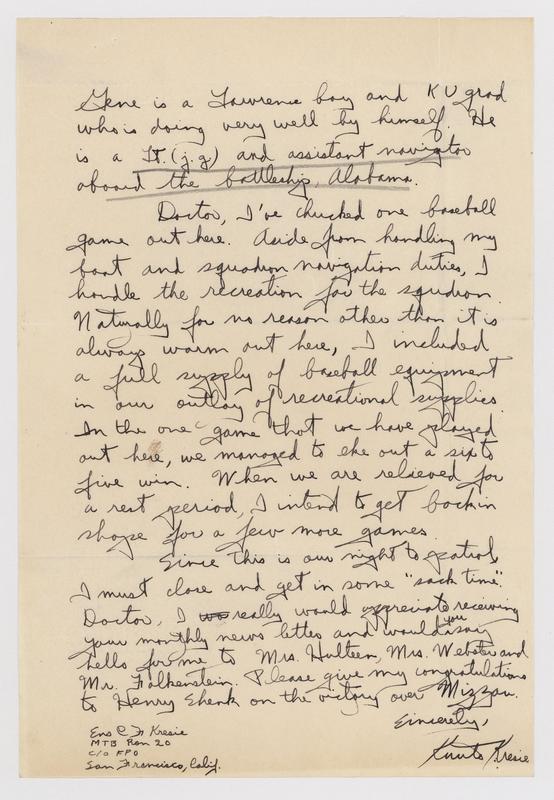 Gene is a Lawrence boy and KU grad
who is doing very well by himself. He
is a Lt. (j.g.) and assistant navigator
aboard the battleship, Alabama.
Doctor, I've chucked one baseball
game out here. Aside from handling my
boat and squadron navigation duties, I
handle the recreation for the squadron.
Naturally for no reason other than it is
always warm out here, I included
a full supply of baseball equipment
in our outlay of recreational supplies.
In the one game that we have played
out here, we managed to eke out a six to
five win. When we are relieved for
a rest period, I intend to get back in
shape for a few more games.
Since this is our night to patrol,
I must close and get in some "sack time".
Doctor, I really would appreciate receiving
your monthly news letter and would you say
hello for me to Mrs. Hulteen, Mrs. Webster and
Mr. Falkenstein. Please give my congratulations
to Henry Shenk on the victory over Mizzou.
Sincerely,
Ens C F Kresie
MTB Ron 20
c/o FPO
San Francisco, Calif.
Kresie